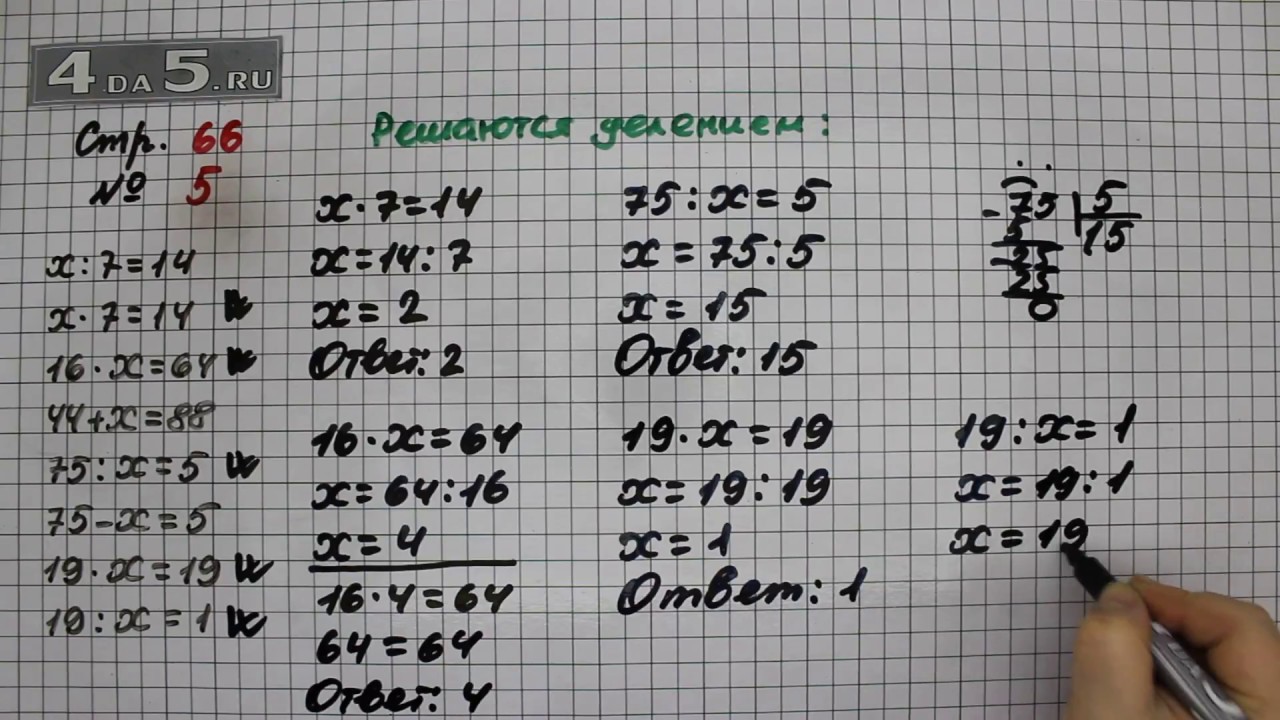 4DA5.RU
Стр. 66
№ 5
Решаются делением:
х:7=14
х·7=14
16·х=64
44+х=88
75:х=5
75-х=5
19·х=19
19:х=1
х·7=14
х=14:7
х=2
Ответ: 2
16·х=64
х=64:16
х=4
16·4=64
64=64
Ответ: 4
75:х=5
х=75:5
х=15
Ответ: 15
19·х=19
х=19:19
х=1
Ответ: 1
-75 5
5 15
-25
25
0
19:х=1
х=19:1
х=19